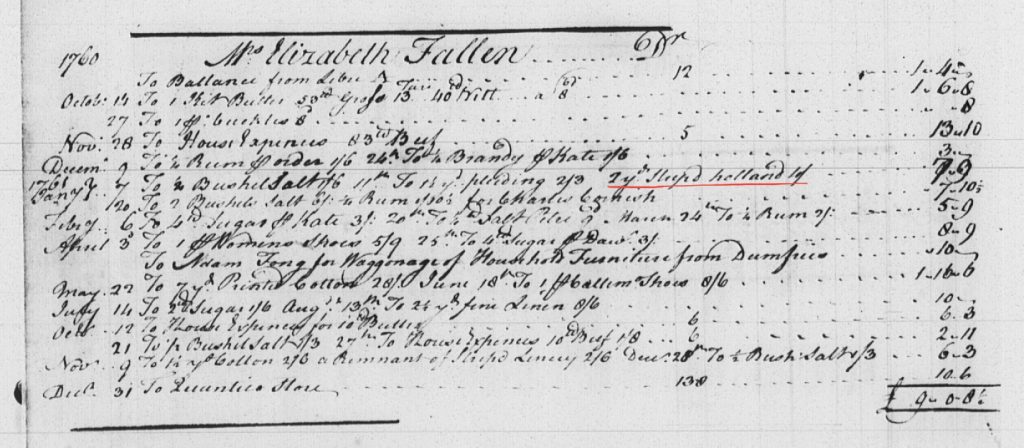 1760 Mrs Elizabeth Fallen Dr
To Ballance from Liber 12 1 „ 4 „
Octobr 14 To 1 Butter 53 lb Gross Tare 13 40 lb Nitt a 8d 1 „ 6 „ 8
27 To 1 pr buckles 8d „ 8
Novr 28 To House Expences 83 lb Beef 5 13 „ 10
Decemr 9 To ¼ Rum order 1/6 24th To ¼ Brandy Kate 1/6 3 „
1761 Jany 7 To ½ Bushel Salt 1/6 11th To 1½ yd pleding 2/3 2 yds Striped holland 7 „ 9
20 To 2 Bushels Salt 6/. ¼ Rum for Charles Cornish 7 „ 10½
Febry 6 To 4 lb Sugar Kate 3/. 20th To Salt Petre March 24th To ¼ Rum 2/. 5 „ 9
April 3d To 1 pr Womens Shoes 5/9 25th To 4 lb Sugar 3/. 8 „ 9
To Adam Fong for Waggonage of Household Furniture from Dumfries „ 10 „
May 22 To 7 yds Printed Cotton 28/. June 18th To 1 pr Callem. Shoes 8/6 1 „ 16 „ 6
July 14 To 2 lb Sugar 1/6 Augt 13th To 2½ yds fine Linen 8/6 10 „
Octr 12 To House Expences for 10 lb Butter 6 6 „ 3
21 To ½ Bushel Salt 1/3 27th To House Expences 10 lb Beef 1/8 6 2 „ 11
Novr 9 To 1½ yd Cotton 2/6 a Remnant of Striped Lincey 2/6 Decr 28th To ½ Bush. Salt 1/3 6 „ 3
Decr 31 To Quantico Store 138 10 „ 6
£ 9 „ 0 „ 8½